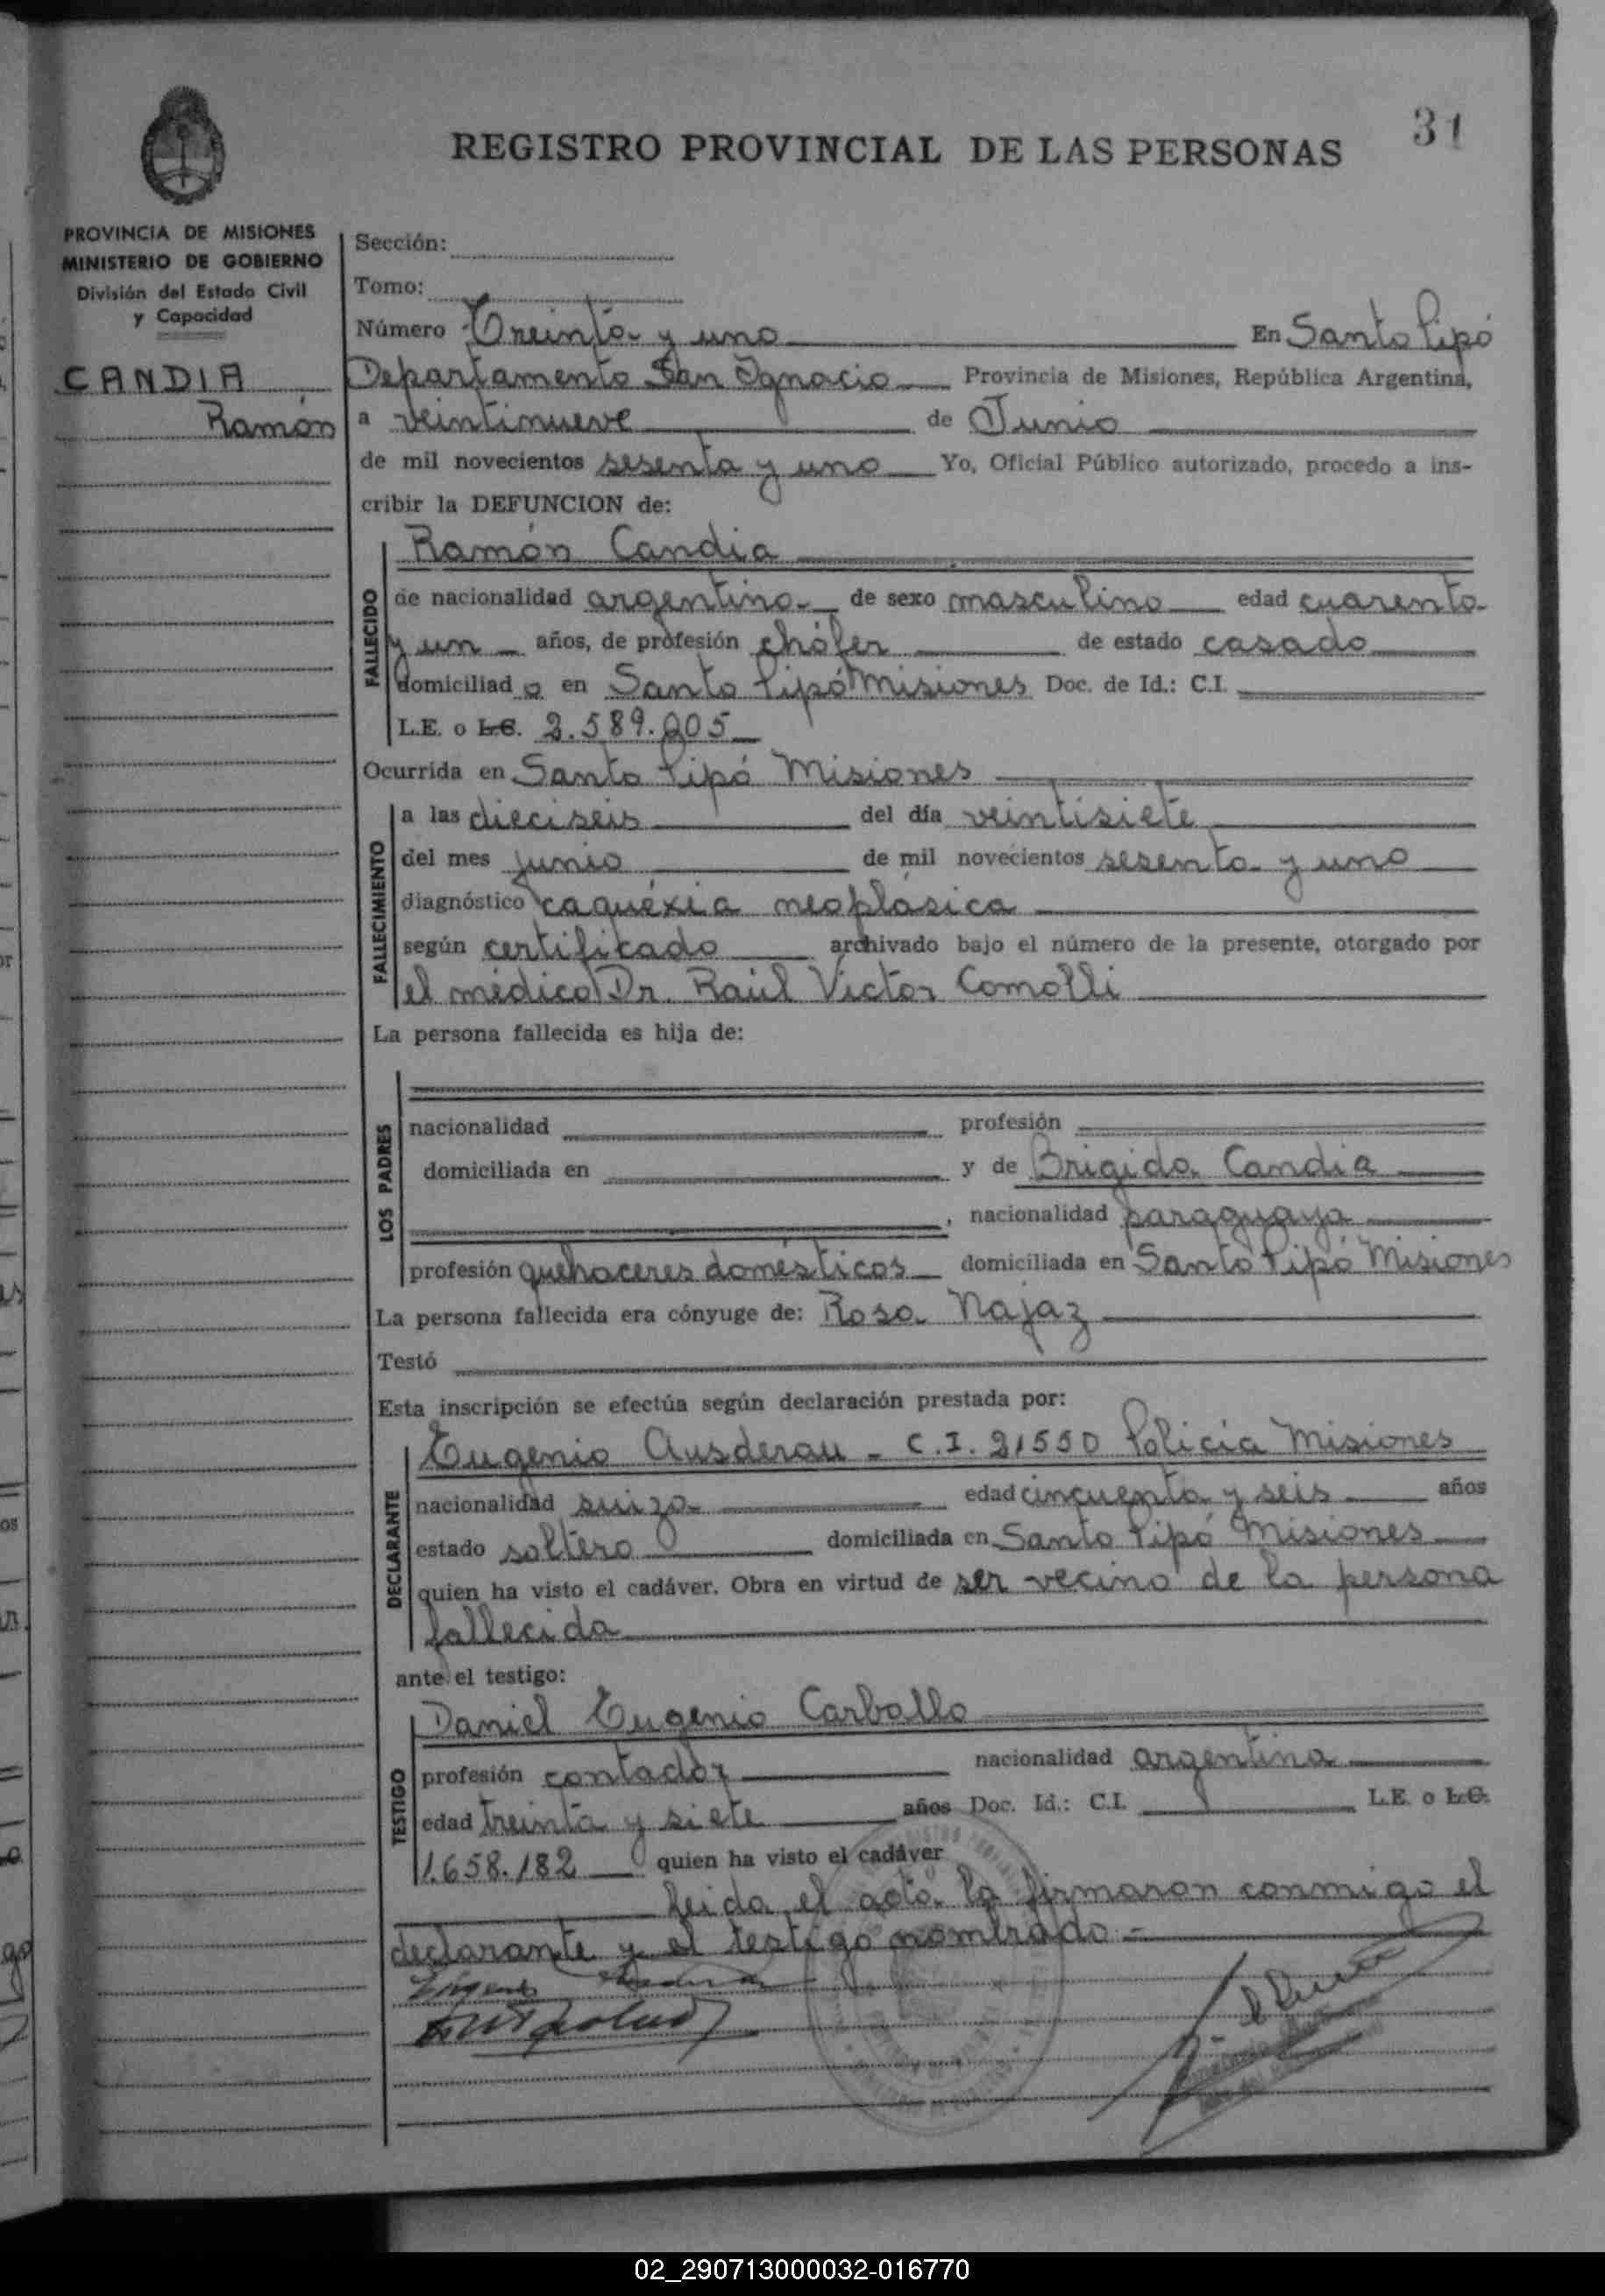 31
REGISTRO PROVINCIAL DE LAS PERSONAS
PROVINCIA DE MISIONES
MINISTERIO DE GOBIERNO
División del Estado Civil
y Capacidad
CANDIA
Ramón
Sección:
Tomo:
Número Treinta y uno En Santo Pipó
Departamento San Ignacio Provincia de Misiones, República Argentina,
a veintinueve de Junio
de mil novecientos sesenta y uno Yo, Oficial Público autorizado, procedo a ins-
cribir la DEFUNCION de:
FALLECIDO
Ramón Candia
de nacionalidad argentino de sexo masculino edad cuarenta
y un años, de profesión chófer de estado casado
domiciliado en Santo Pipó Misiones Doc. de Id.: C.I.
L.E. o L.C. 2.589.205
Ocurrida en Santo Pipó Misiones
FALLECIMIENTO
a las dieciseis del día veintisiete
del mes junio de mil novecientos sesenta y uno
diagnóstico caquéxia neoplásica
según certificado archivado bajo el número de la presente, otorgado por
el médico Dr. Raúl Víctor Comolli
La persona fallecida es hija de:
LOS PADRES
nacionalidad profesión
domiciliada en y de Brigida Candia
, nacionalidad paraguaya
profesión quehaceres domésticos domiciliada en Santo Pipó Misiones
La persona fallecida era cónyuge de: Rosa Najaz
Testó
Esta inscripción se efectúa según declaración prestada por:
DECLARANTE
Eugenio Ausderau - C.I. 21550 Policía Misiones
nacionalidad suiza edad cincuenta y seis años
estado soltero domiciliada en Santo Pipó Misiones
quien ha visto el cadáver. Obra en virtud de ser vecino de la persona
fallecida
ante el testigo:
TESTIGO
Daniel Eugenio Carballo
profesión contador nacionalidad argentina
edad treinta y siete años Doc. Id.: C.I. L.E. o L.C.
1.658.182 quien ha visto el cadáver
leida el acta la firmaron conmigo el
declarante y el testigo nombrado.-
02_290713000032-016770